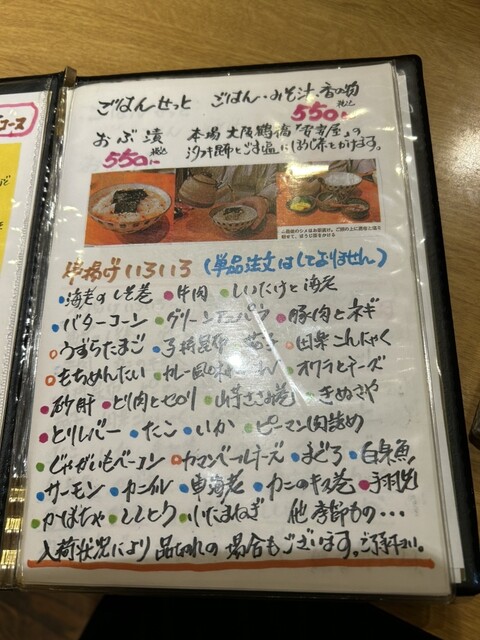 コース
ごはんせっと ごはん・みそ汁・香の物
550 税込
おぶ漬 本場 大阪鶴橋「
550 汐吹昆布とごま塩にほうじ茶をかけます。
串揚げいろいろ (単品注文はしておりません)
海老のしそ巻 牛肉 しいたけと海老
バターコーン グリーンアスパラ 豚肉とネギ
うずらたまご 子持昆布 茄子 田楽こんにゃく
もちめんたい カレー風味 オクラとチーズ
砂肝 とり肉とセロリ 山芋ささみ巻 きぬさや
とりレバー たこ いか ピーマン肉詰め
じゃがいもベーコン カマンベールチーズ まぐろ 白身魚
サーモン カニ爪 車海老 カニのキス巻 手羽先
かぼちゃ ししとう 小たまねぎ 他 季節もの…
入荷状況により品切れの場合もございます。ご了承下さい。